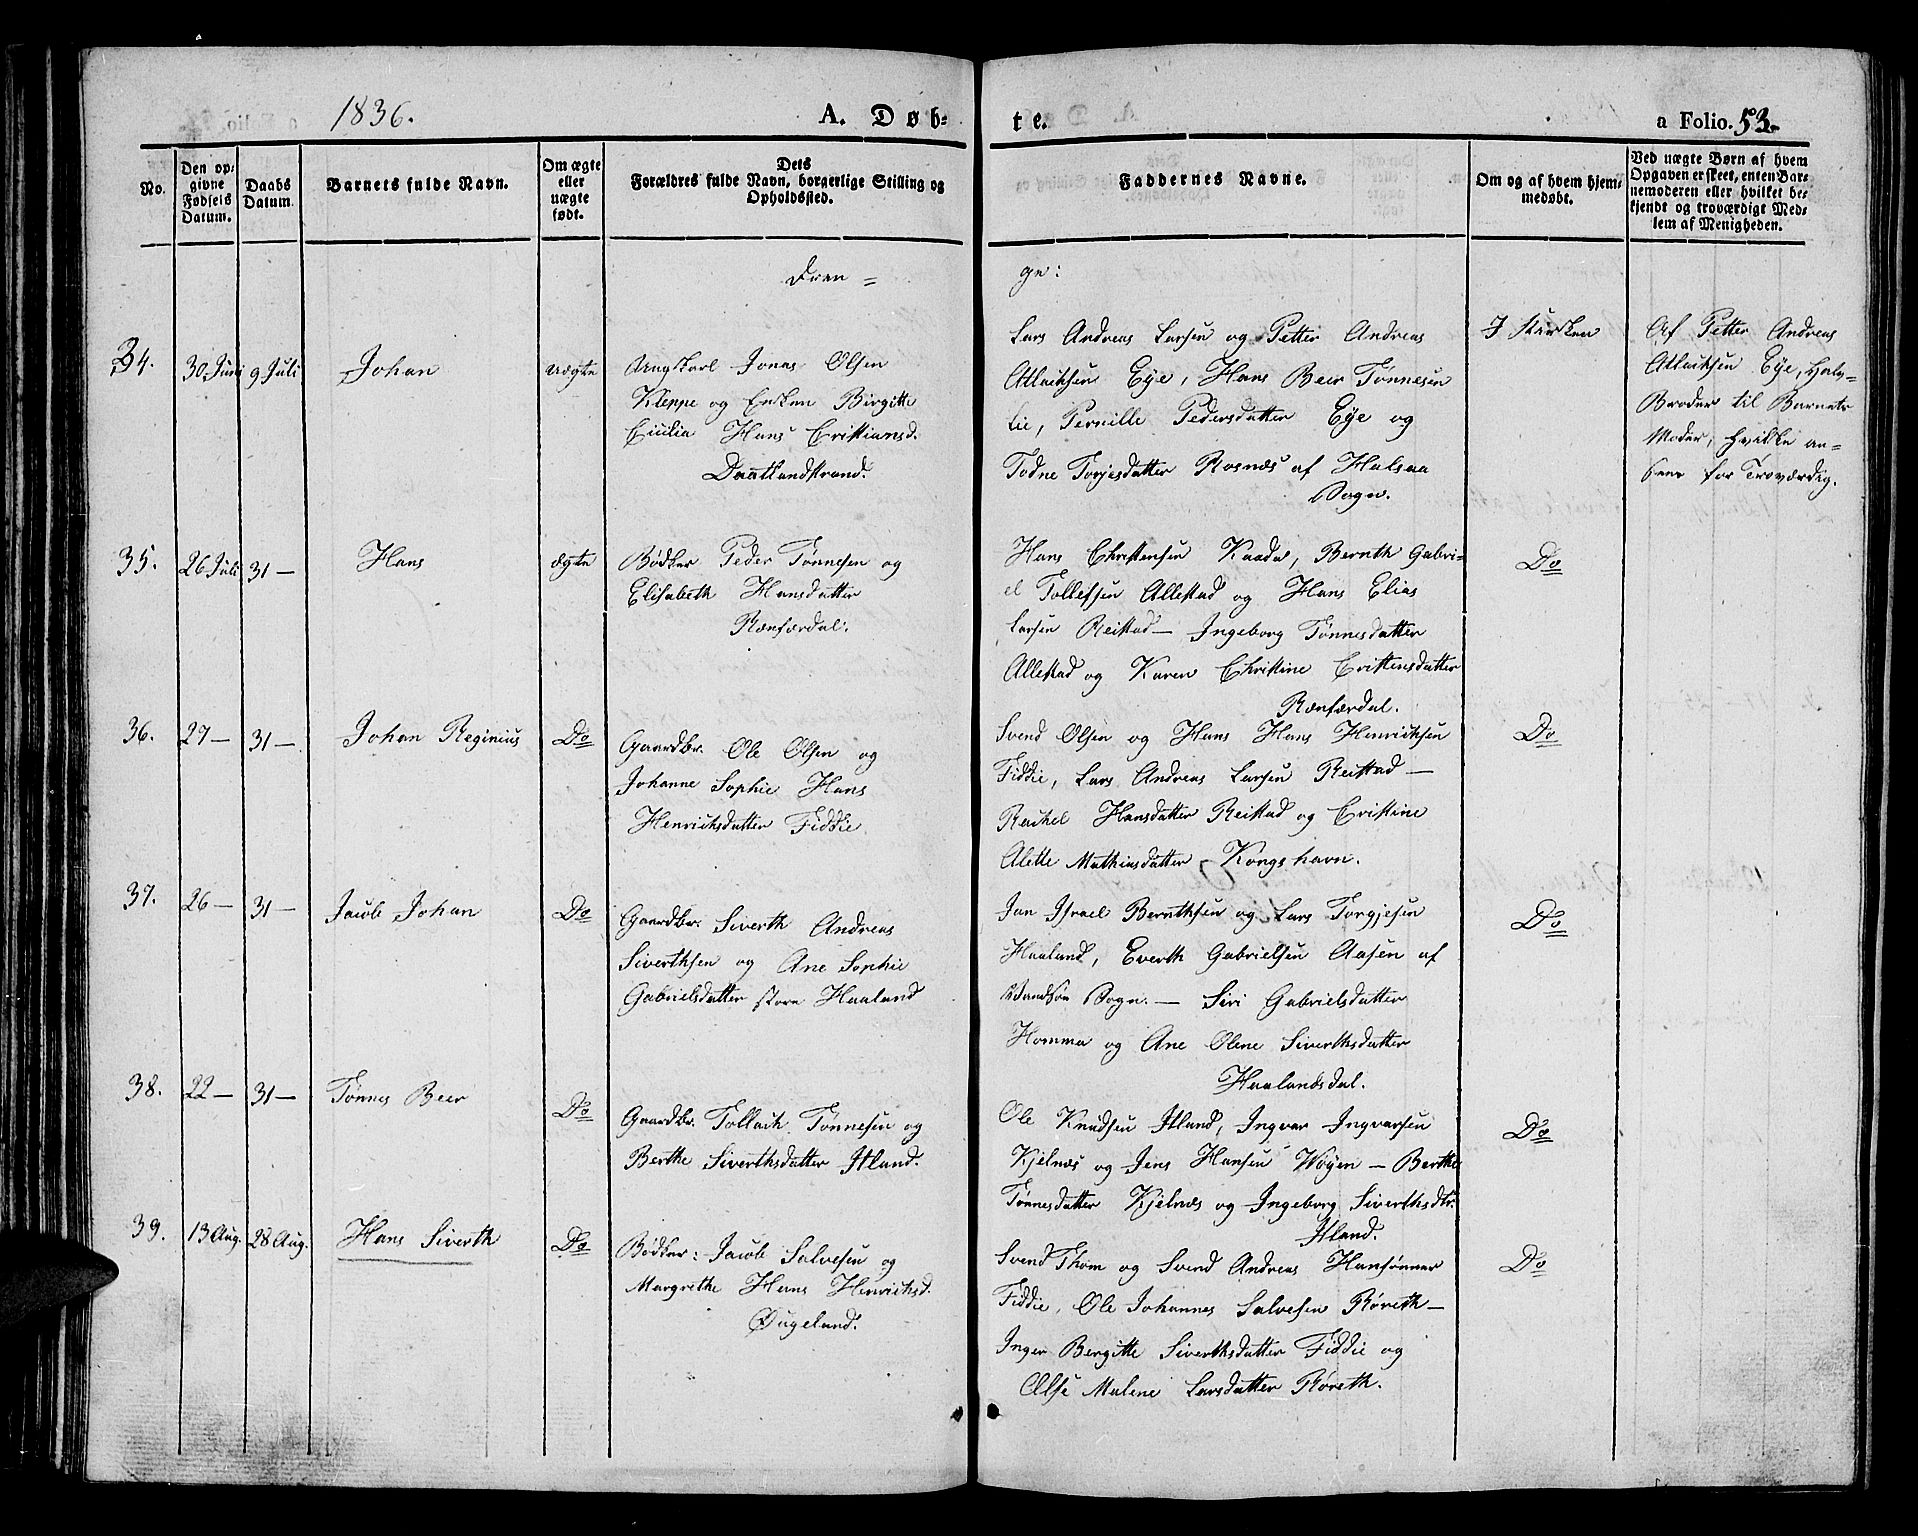 1836.
A. Døb-
te.
a Folio. 53.
No.
Den op-
givne
Fødsels
Datum.
Daabs
Datum.
Barnets fulde Navn.
Om ægte
eller
uægte
født.
Dets
Forældres fulde Navn, borgerlige Stilling og
Opholdssted.
Faddernes Navne.
Om og af hvem hjem-
medøbt.
Ved uægte Børn af hvem
Opgaven er skeet, enten Bar-
nemoderen eller hvilket be-
kjendt og troværdigt Med-
lem af Menigheden.
Dren =
ge:
34.
30 Juni
9 Juli
Johan
uægte
Ungkarl Jonas Olsen
Kleppe og Enken Birgitte
Cicilia Hans Cristiansd.
Daatlandstrand.
Lars Andreas Larsen og Petter Andreas
Atlaksen Eye, Hans Beir Tønnesen
Lie, Pernille Pedersdatter Eye og
Todne Torjesdatter Rosnæs af Halsaa
Sogn.
I Kirken
Af Petter Andreas
Atlaksen Eye, Halv-
Broder til Barnets
Moder, hvilke an-
sees for Troværdig.
35.
26 Juli
31 —
Hans
ægte
Bødker Peder Tønnesen og
Elisabeth Hansdatter
Rænfærdal.
Hans Christensen Kaada, Bernth Gabri-
el Tollefsen Allestad og Hans Elias
Larsen Reistad — Ingeborg Tønnesdatter
Allestad og Karen Christine Cristensdatter
Rænfærdal.
Do
36.
27 —
31 —
Johan Reginius
Do
Gaardbr. Ole Olsen og
Johanne Sophie Hans
Henrichsdatter Fiddie
Svend Olsen og Hans Hans Henrichsen
Fiddie, Lars Andreas Larsen Reistad —
Rachel Hansdatter Reistad og Cristine
Alette Mathiasdatter Kongshavn.
Do
37.
26 —
31 —
Jacob Johan
Do
Gaardbr. Siverth Andreas
Siverthsen og Ane Sophie
Gabrielsdatter store Haaland
Jan Israel Bernthsen og Lars Torgjesen
Haaland, Everth Gabrielsen Aasen af
Vandsøe Sogn. — Siri Gabrielsdatter
Homma og Ane Olene Siverthsdatter
Haalandsdal.
Do
38.
22 —
31 —
Tønnes Beer
Do
Gaardbr. Tollach Tønnesen og
Berthe Siverthsdatter Itland.
Ole Knudsen Itland, Ingvar Ingvarsen
Kjelnæs og Jens Hansen Wøyen — Berthe
Tønnesdatter Kjelnæs og Ingeborg Siverthsdtr.
Itland.
Do
39.
13 Aug.
28 Aug.
Hans Siverth
Do
Bødker: Jacob Salvesen og
Margrethe Hans Henrichsd.
Øugeland.
Svend Thom og Svend Andreas Hansønner
Fiddie, Ole Johannes Salvesen Røveth —
Inger Bergitte Siverthsdatter Fiddie og
Else Malene Larsdatter Røreth.
Do